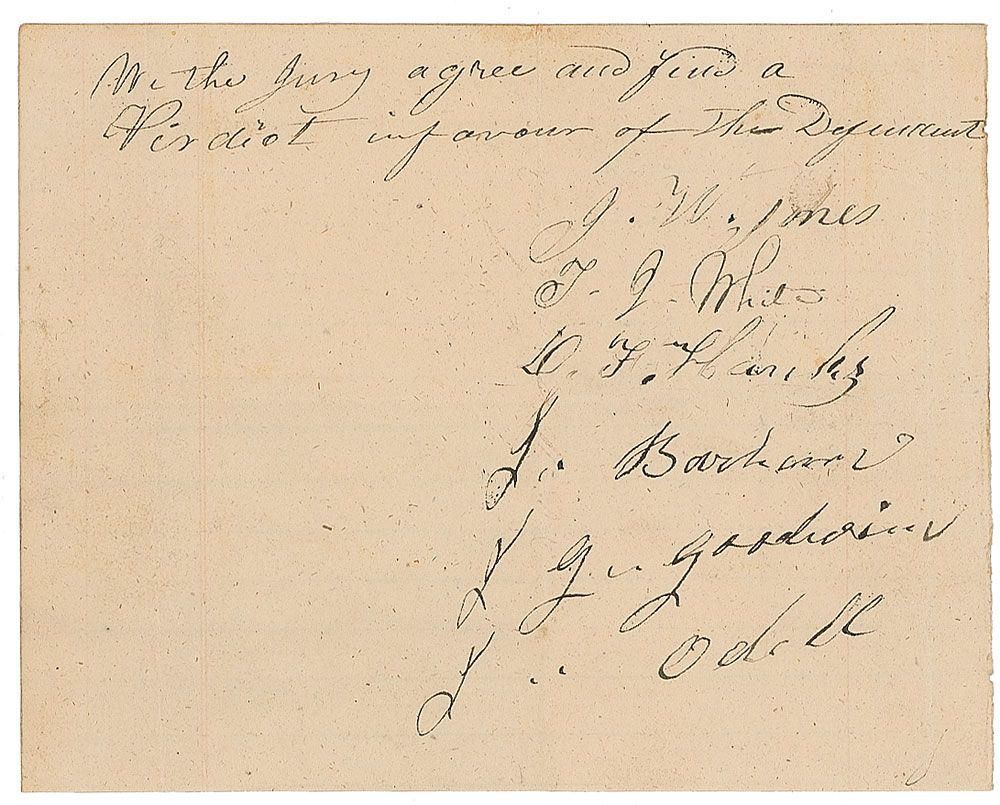 We the Jury agree and find a
Virdict in favour of the Defendant
J. W. Jones
T. J. White
D. F. Hanks
J. Barham
J G. Goodwin
J. Odell